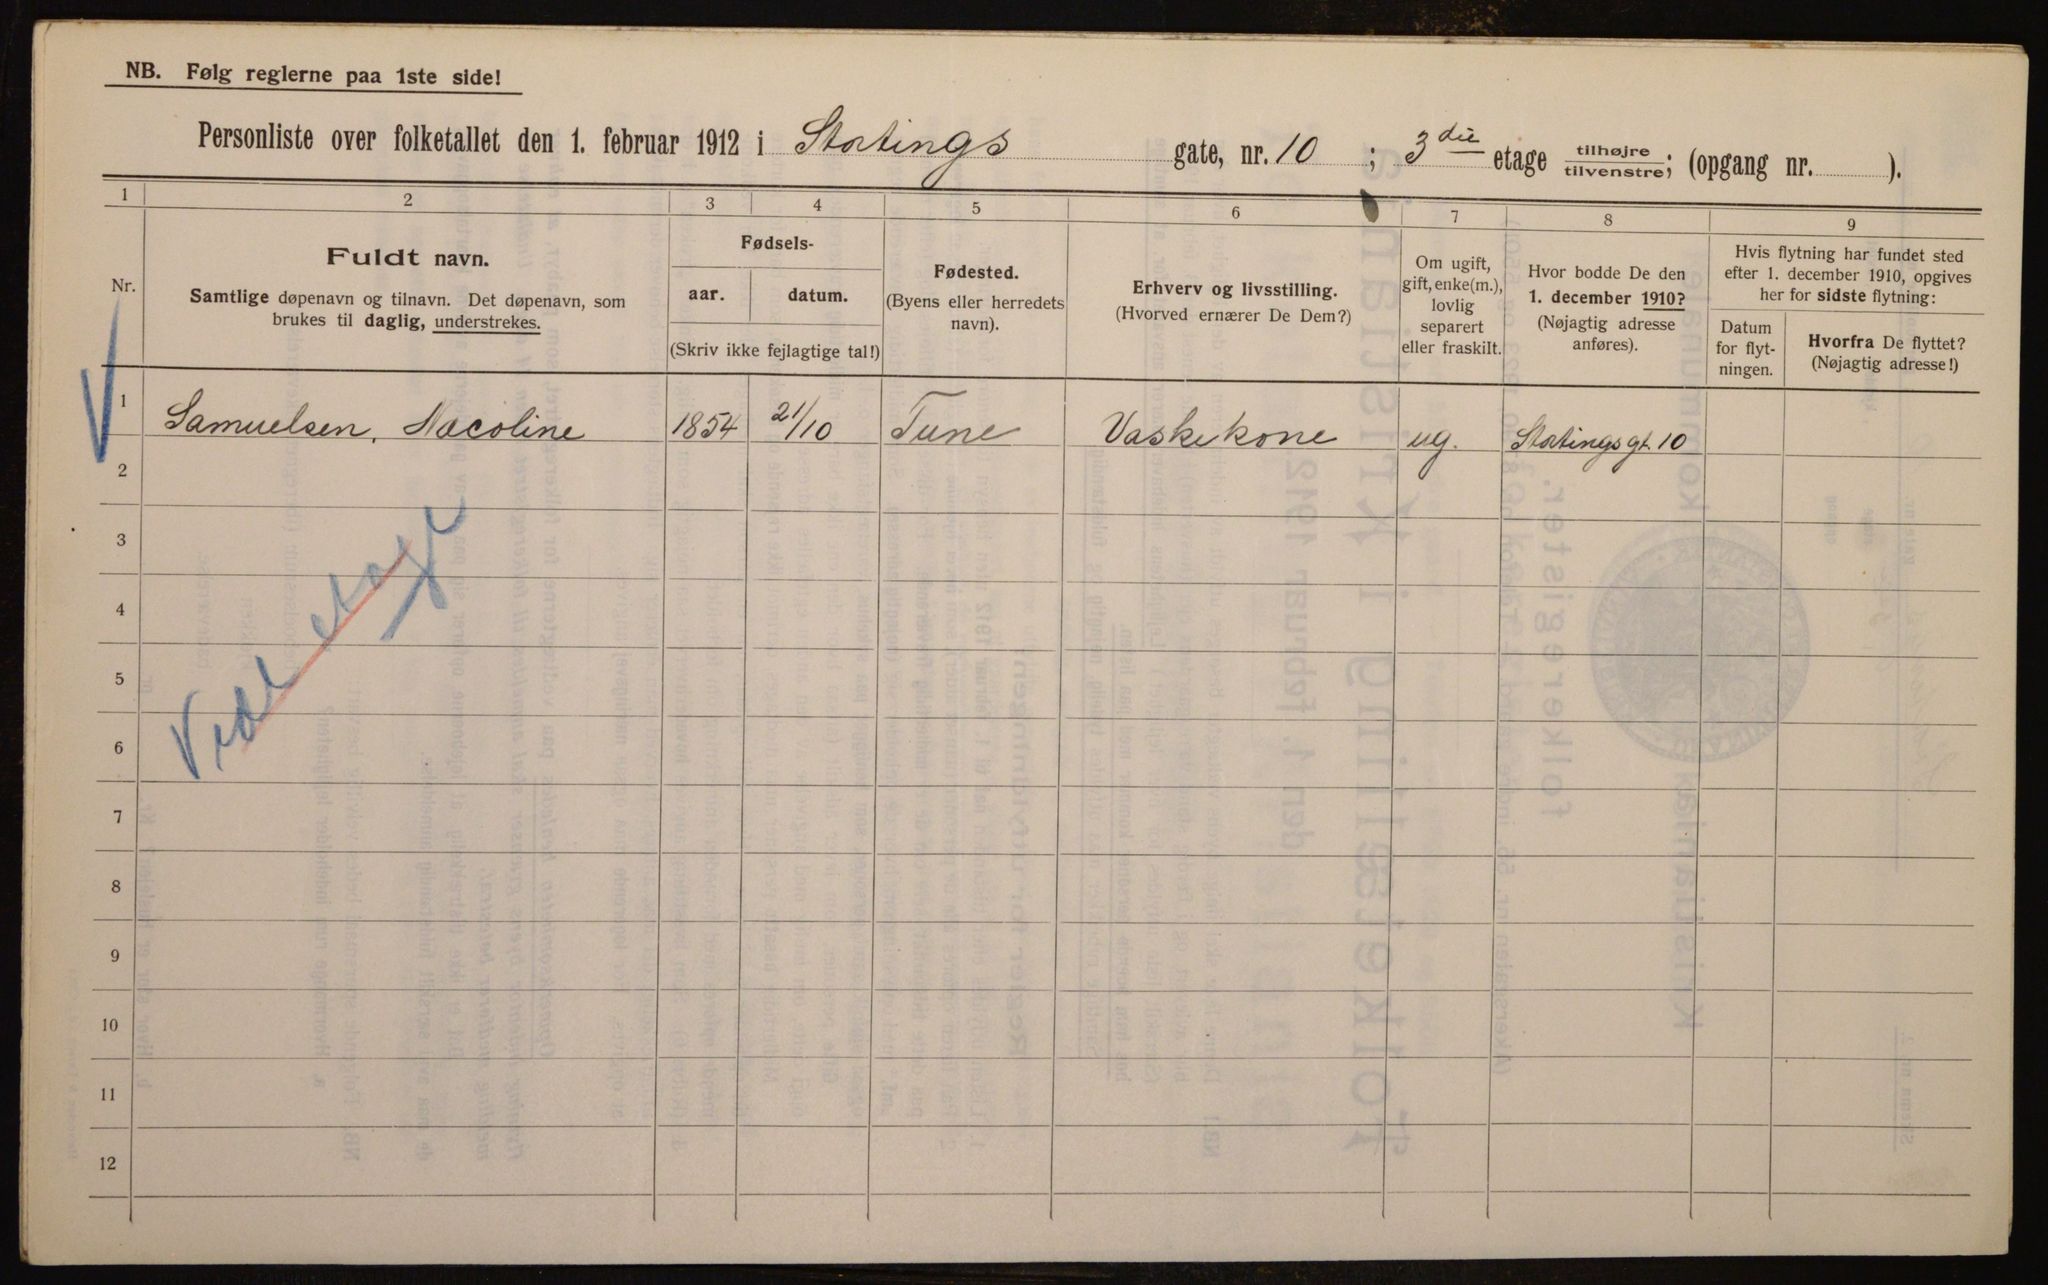 NB. Følg reglerne paa 1ste side!
Personliste over folketallet den 1. februar 1912 i Stortings gate, nr. 10 ; 3die etage tilhøjre/tilvenstre; (opgang nr. ).
1 2 3 4 5 6 7 8 9
Nr.
Fuldt navn.
Samtlige døpenavn og tilnavn. Det døpenavn, som
brukes til daglig, understrekes.
Fødsels-
aar. datum.
(Skriv ikke fejlagtige tal!)
Fødested.
(Byens eller herredets
navn).
Erhverv og livsstilling.
(Hvorved ernærer De Dem?)
Om ugift,
gift, enke(m.),
lovlig
separert
eller fraskilt.
Hvor bodde De den
1. december 1910?
(Nøjagtig adresse
anføres).
Hvis flytning har fundet sted
efter 1. december 1910, opgives
her for sidste flytning:
Datum
for flyt-
ningen.
Hvorfra De flyttet?
(Nøjagtig adresse!)
1 Samuelsen, Nacoline 1854 21/10 Tune Vaskekone ug. Stortingsgt. 10
2
3
4
5
6
7
8
9
10
11
12